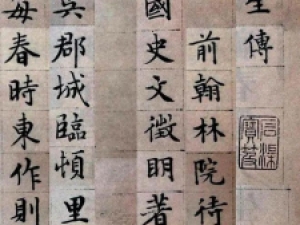 生傳
前翰林院待
國史文徵明著
吳郡城臨頓里
每春時東作則